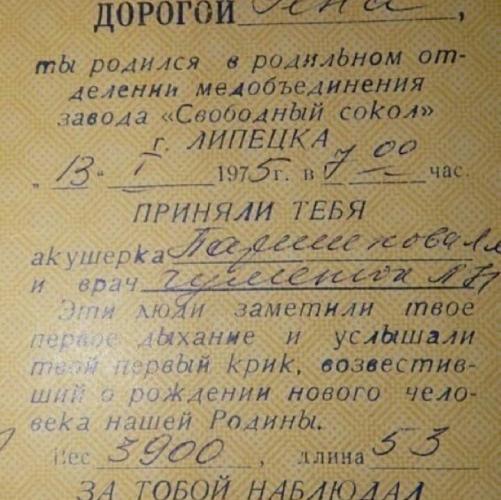 ДОРОГОЙ Гена,
ты родился в родильном от-
делении медобъединения
завода «Свободный сокол»
г. ЛИПЕЦКА
„13“ I 1975 г. в 7 00 час.
ПРИНЯЛИ ТЕБЯ
акушерка
и врач
Эти люди заметили твое
первое дыхание и услышали
твой первый крик, возвестив-
ший о рождении нового чело-
века нашей Родины.
Вес 3900, длина 53
ЗА ТОБОЙ НАБЛЮДАЛ